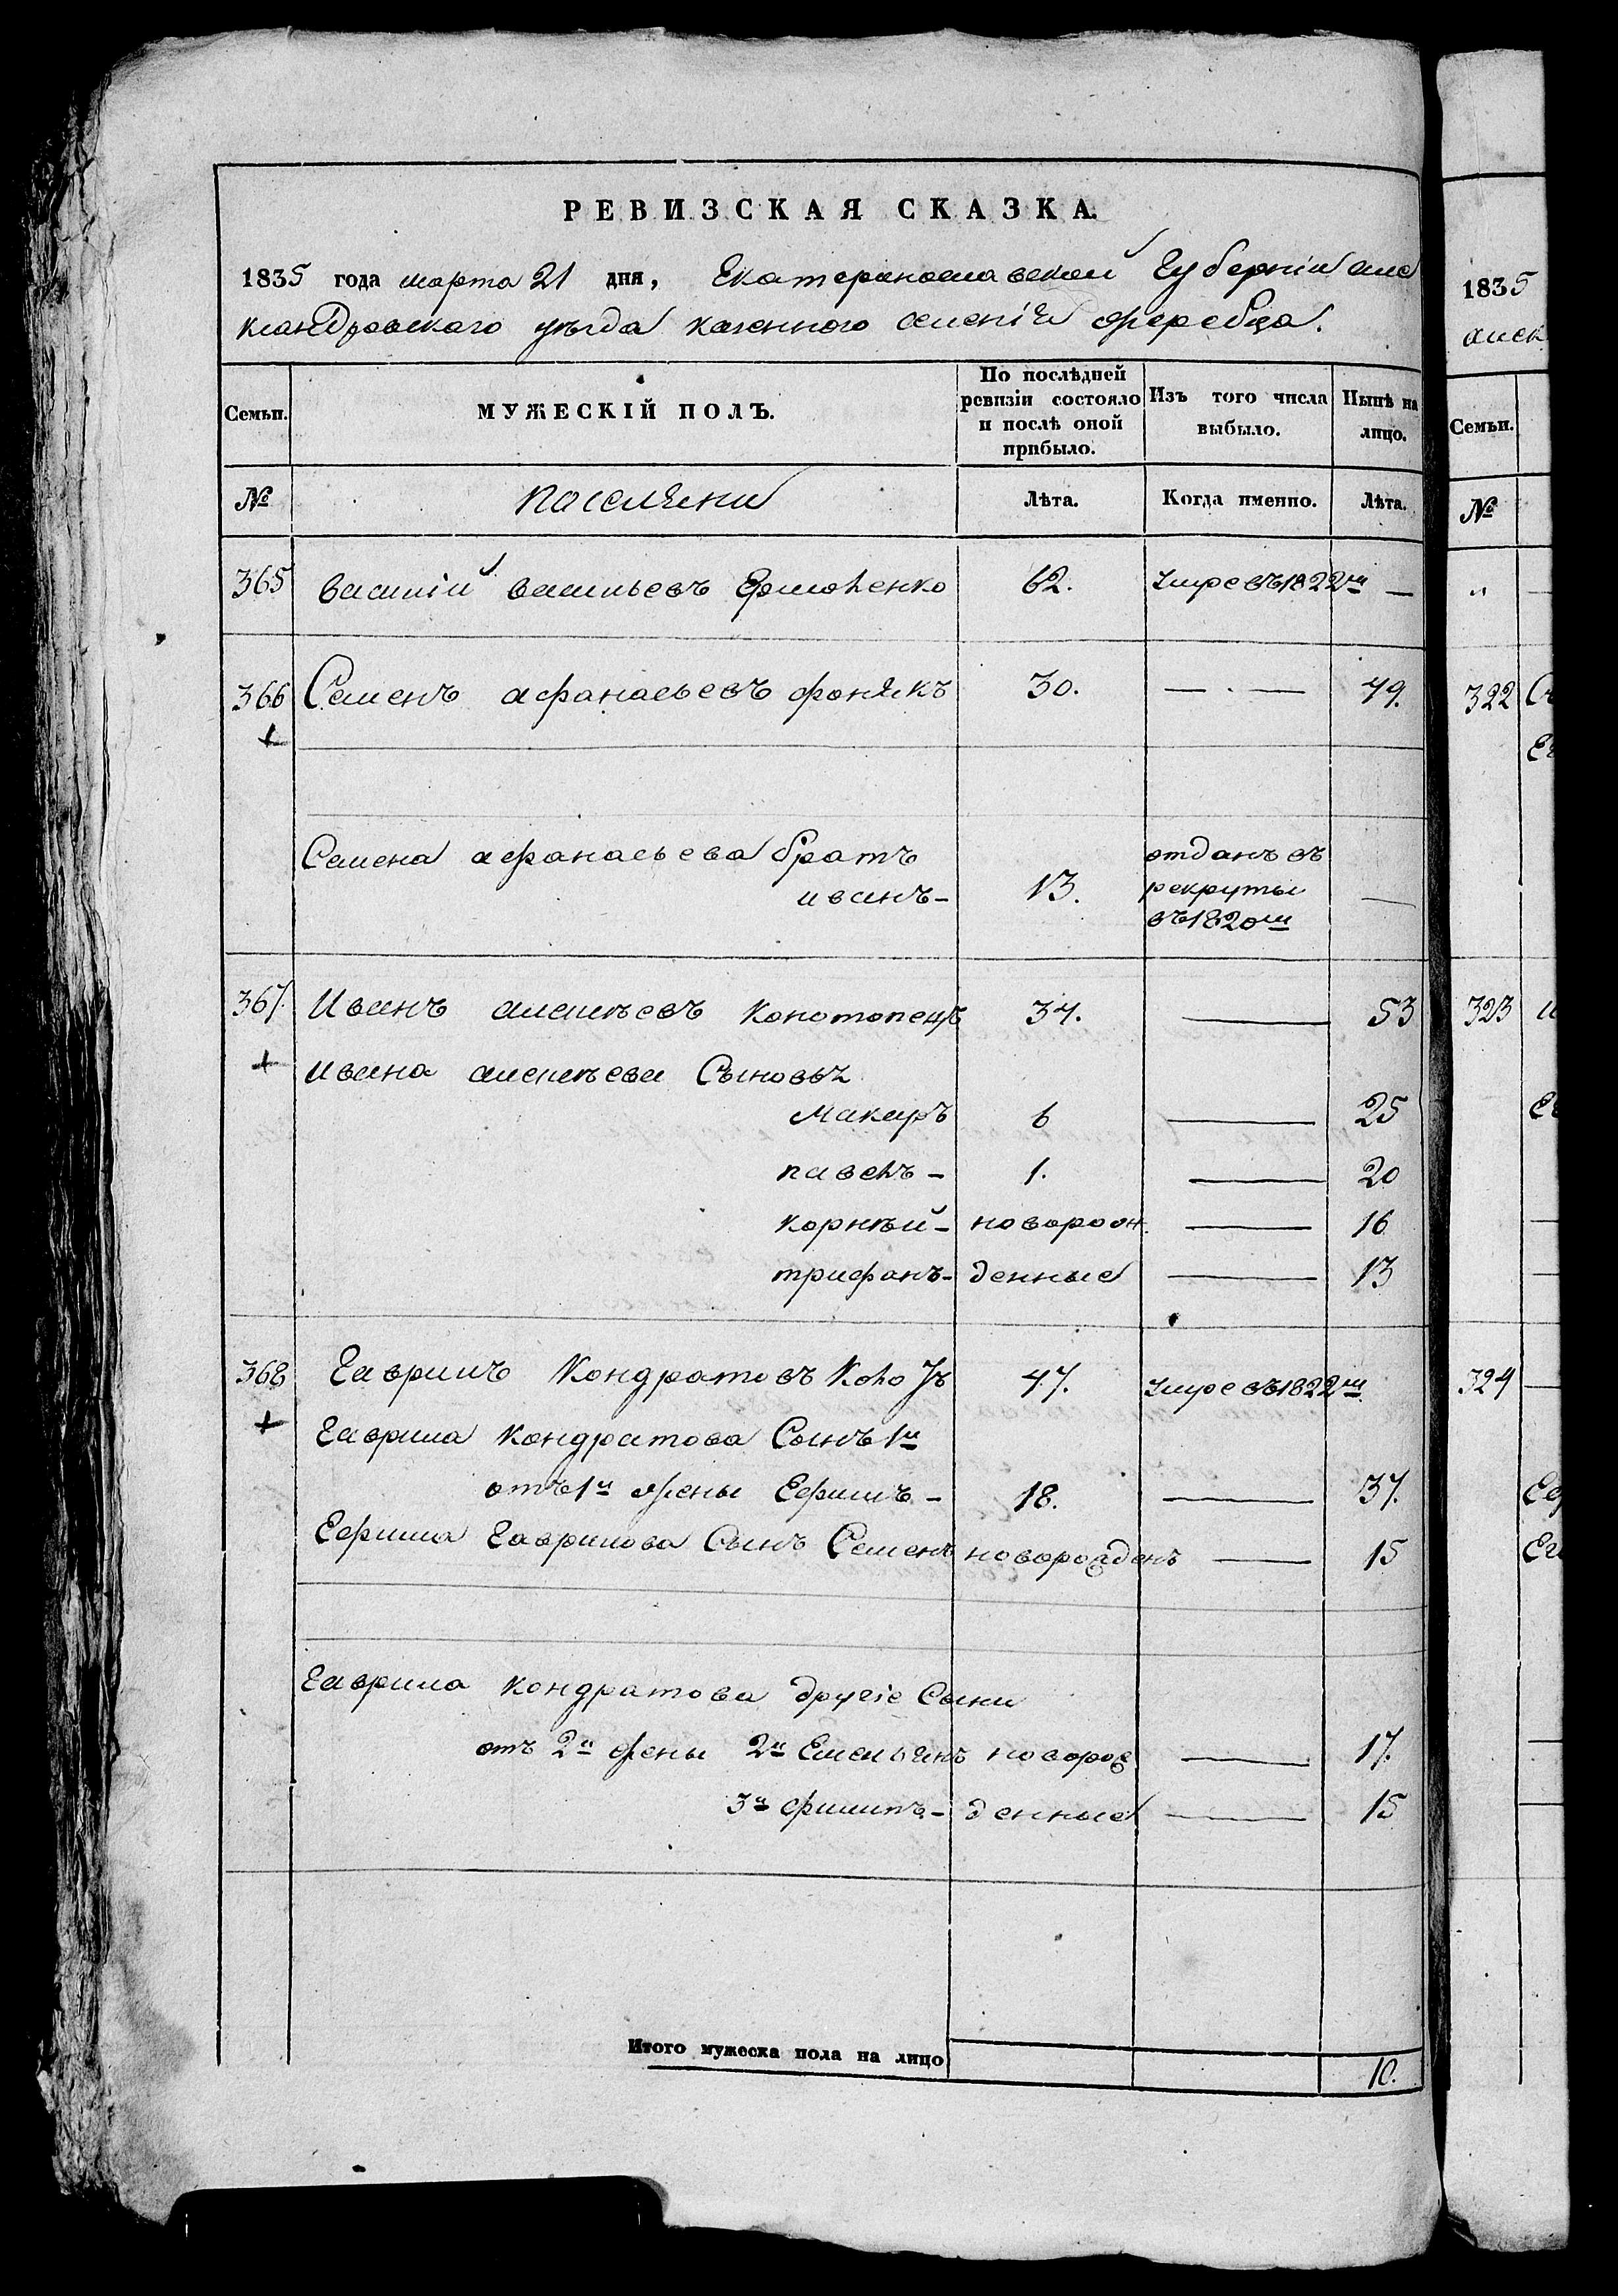 РЕВИЗСКАЯ СКАЗКА.
1835 года марта 21 дня, Екатеринославской Губерніи але
ксандровского уѣзда казенного селенія жеребца.
Семьи.
МУЖЕСКІЙ ПОЛЪ.
По послѣдней ревизіи состояло и послѣ оной прибыло.
Изъ того числа выбыло.
Нынѣ на лицо.
№
поселяни
Лѣта.
Когда именно.
Лѣта.
365 василій васильевъ Ермоленко 62. умре въ 1822м —
366 Семенъ афанасьевъ фонякъ 30. — . — 49.
Семена афанасьева братъ
иванъ – 13. отданъ въ рекруты въ 1820м —
367. Иванъ алексѣевъ Конотопецъ 34. — 53
Ивана алексѣева Сыновья
Макаръ 6 — 25
павелъ – 1. — 20
корнѣй – новорож — 16
трифанъ – денные — 13
368 Гаврилъ Кондратовъ 47. умре въ 1822м
Гаврила Кондратова Сынъ 1й
отъ 1й жены Ефимъ – 18. — 37.
Ефима Гаврилова Сынъ Семенъ новорожденъ — 15
Гаврила Кондратова другіе Сыни
отъ 2й жены 2й Емельянъ новорож — 17.
3й филипъ – денные — 15
Итого мужеска пола на лицо 10.
1835
алек
Семьи.
№
322
323
324